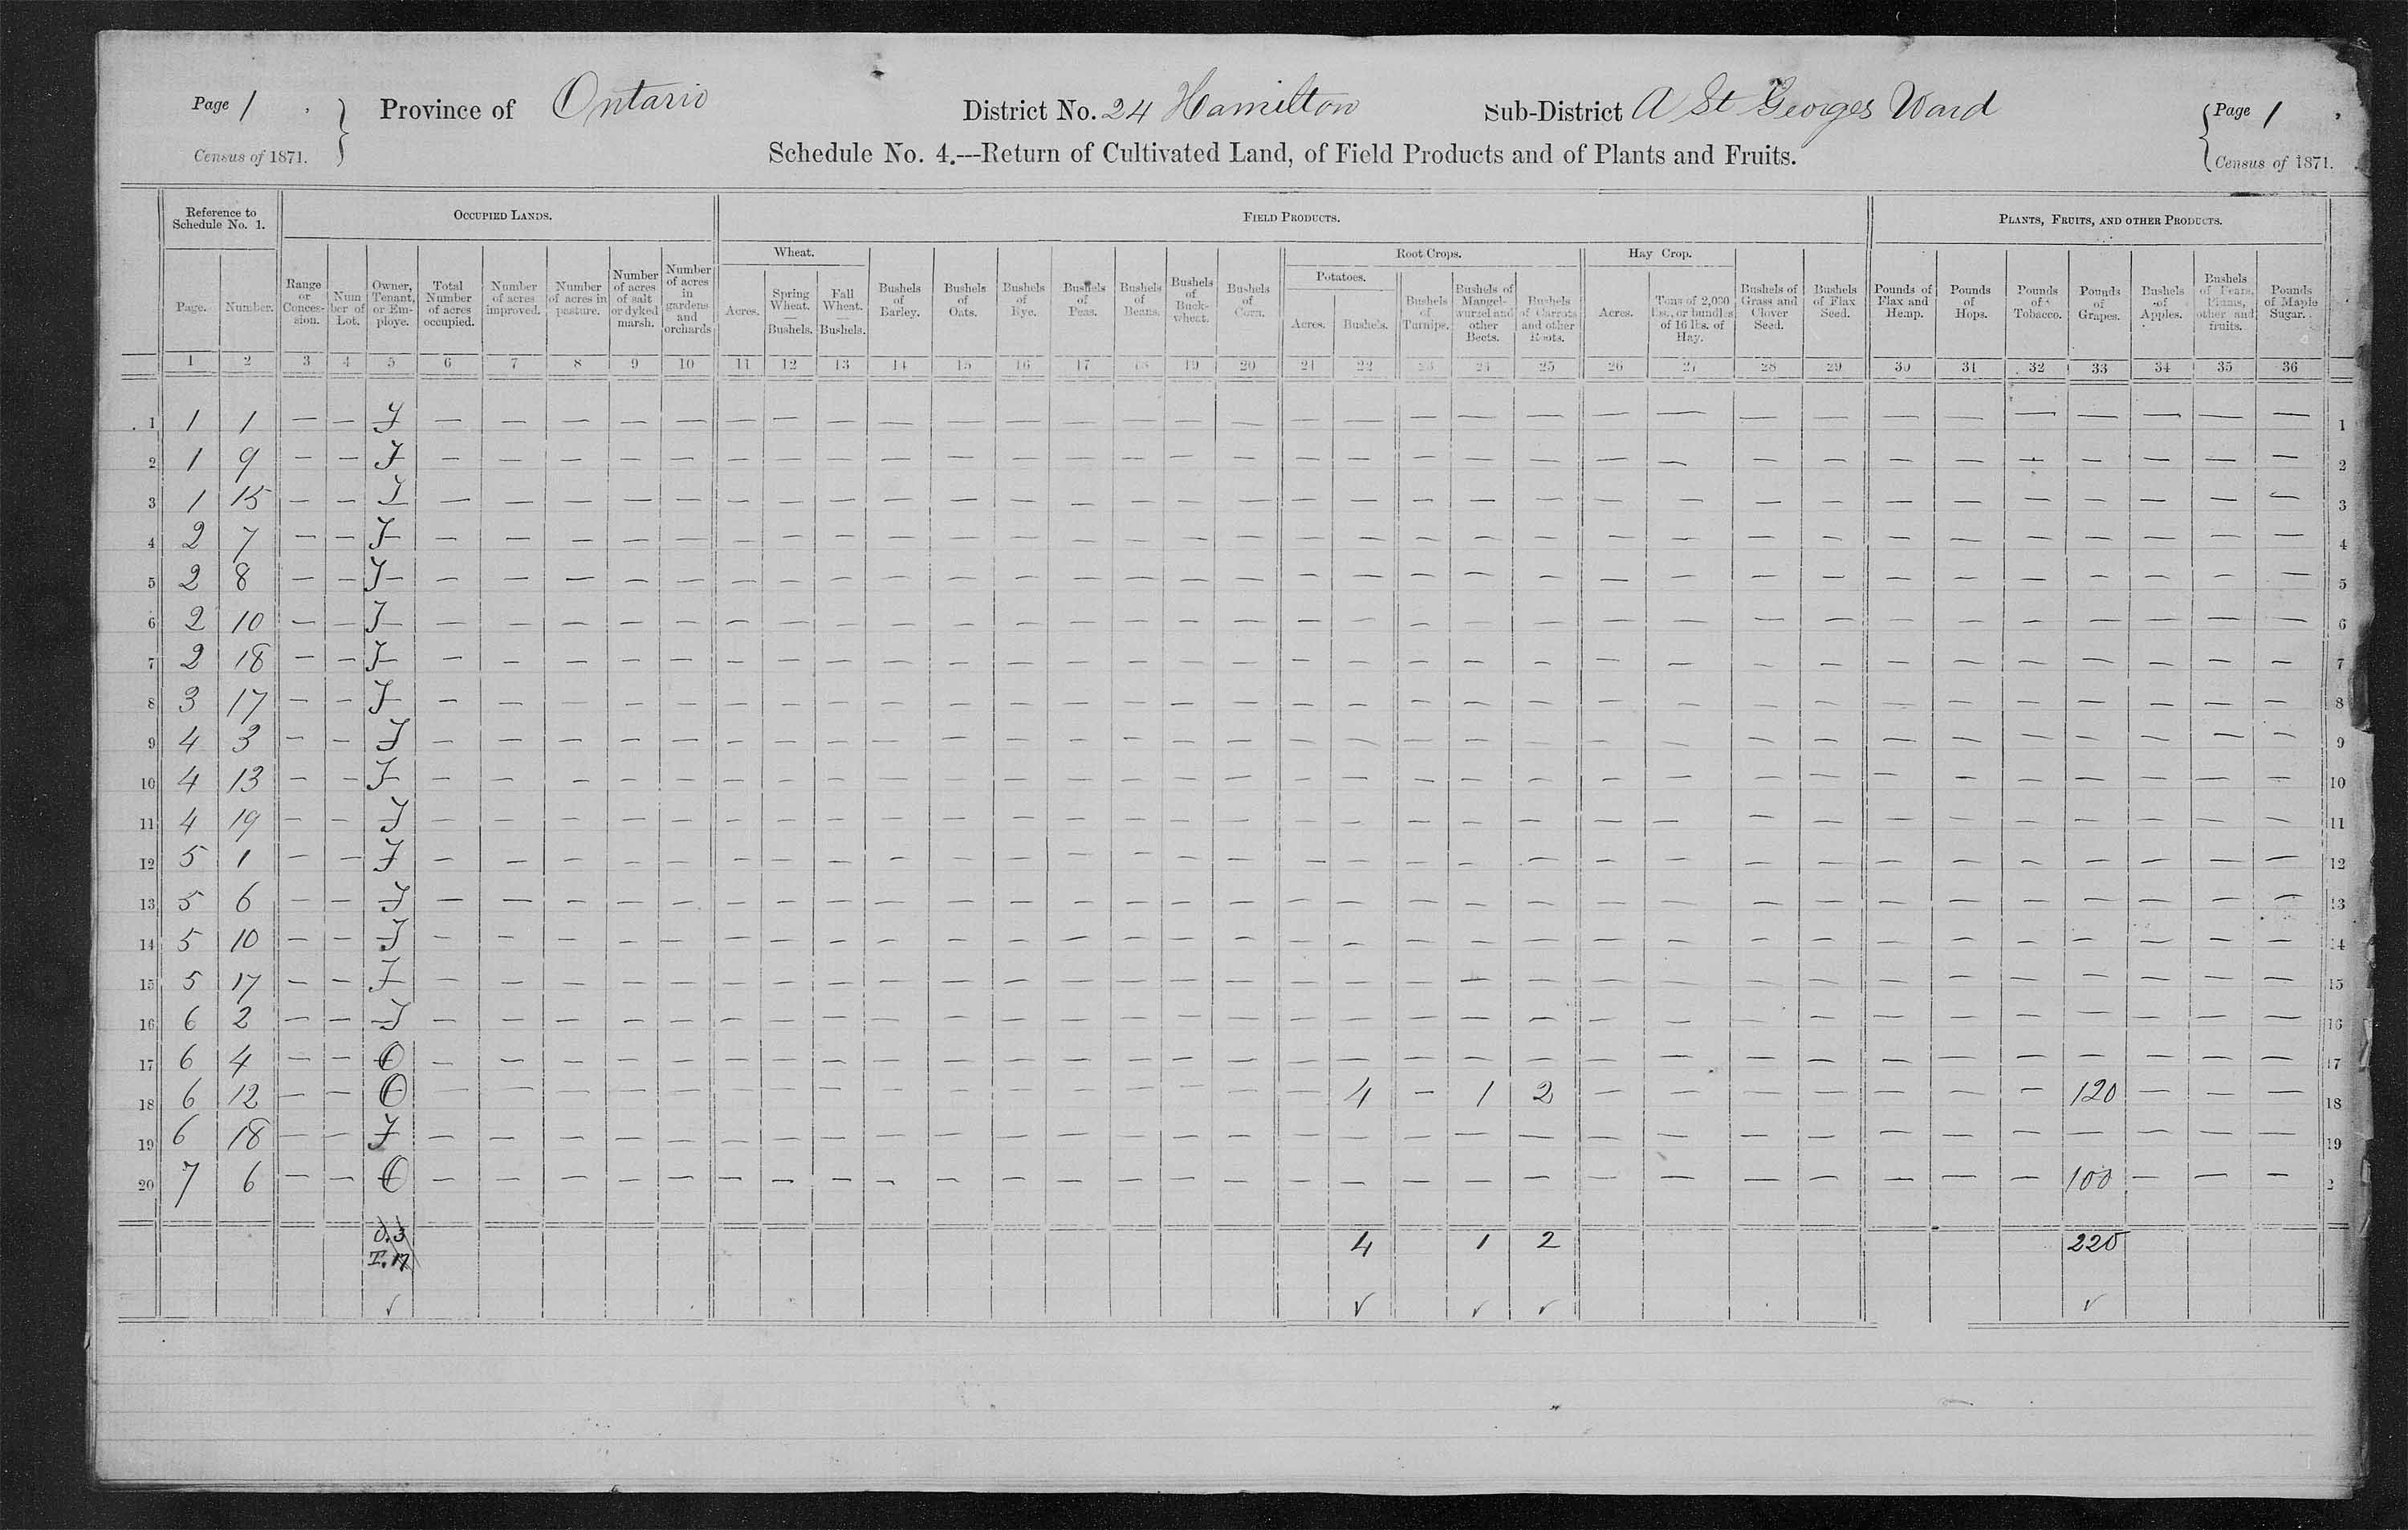 Page 1 Province of Ontario District No. 24 Hamilton Sub-District A St Georges Ward Page 1
Census of 1871. Census of 1871.
Schedule No. 4.---Return of Cultivated Land, of Field Products and of Plants and Fruits.
Reference to Schedule No. 1. OCCUPIED LANDS. FIELD PRODUCTS. PLANTS, FRUITS, AND OTHER PRODUCTS.
Wheat. Root Crops. Hay Crop.
Potatoes.
Page. Number. Range or Conces-sion. Num ber of Lot. Owner, Tenant, or Em-ploye. Total Number of acres occupied. Number of acres improved. Number of acres in pasture. Number of acres of salt or dyked marsh. Number of acres in gardens and orchards Acres. Spring Wheat. — Bushels. Fall Wheat. — Bushels. Bushels of Barley. Bushels of Oats. Bushels of Rye. Bushels of Peas. Bushels of Beans. Bushels of Buck-wheat. Bushels of Corn. Acres. Bushels. Bushels of Turnips. Bushels of Mangel-wurzel and other Beets. Bushels of Carrots and other Roots. Acres. Tons of 2,000 lbs., or bundles of 16 lbs. of Hay. Bushels of Grass and Clover Seed. Bushels of Flax Seed. Pounds of Flax and Hemp. Pounds of Hops. Pounds of Tobacco. Pounds of Grapes. Bushels of Apples. Bushels of Pears, Plums, other and fruits. Pounds of Maple Sugar.
1 2 3 4 5 6 7 8 9 10 11 12 13 14 15 16 17 18 19 20 21 22 23 24 25 26 27 28 29 30 31 32 33 34 35 36
1 1 1 — — T — — — — — — — — — — — — — — — — — — — — — — — — — — — — — — — 1
2 1 9 — — T — — — — — — — — — — — — — — — — — — — — — — — — — — — — — — — 2
3 1 15 — — T — — — — — — — — — — — — — — — — — — — — — — — — — — — — — — — 3
4 2 7 — — T — — — — — — — — — — — — — — — — — — — — — — — — — — — — — — — 4
5 2 8 — — T — — — — — — — — — — — — — — — — — — — — — — — — — — — — — — — 5
6 2 10 — — T — — — — — — — — — — — — — — — — — — — — — — — — — — — — — — — 6
7 2 18 — — T — — — — — — — — — — — — — — — — — — — — — — — — — — — — — — — 7
8 3 17 — — T — — — — — — — — — — — — — — — — — — — — — — — — — — — — — — — 8
9 4 3 — — T — — — — — — — — — — — — — — — — — — — — — — — — — — — — — — — 9
10 4 13 — — T — — — — — — — — — — — — — — — — — — — — — — — — — — — — — — — 10
11 4 19 — — T — — — — — — — — — — — — — — — — — — — — — — — — — — — — — — — 11
12 5 1 — — T — — — — — — — — — — — — — — — — — — — — — — — — — — — — — — — 12
13 5 6 — — T — — — — — — — — — — — — — — — — — — — — — — — — — — — — — — — 13
14 5 10 — — T — — — — — — — — — — — — — — — — — — — — — — — — — — — — — — — 14
15 5 17 — — T — — — — — — — — — — — — — — — — — — — — — — — — — — — — — — — 15
16 6 2 — — T — — — — — — — — — — — — — — — — — — — — — — — — — — — — — — — 16
17 6 4 — — O — — — — — — — — — — — — — — — — — — — — — — — — — — — — — — — 17
18 6 12 — — O — — — — — — — — — — — — — — — — 4 — 1 2 — — — — — — — 120 — — — 18
19 6 18 — — T — — — — — — — — — — — — — — — — — — — — — — — — — — — — — — — 19
20 7 6 — — O — — — — — — — — — — — — — — — — — — — — — — — — — — — 100 — — — 2
O. 3 4 1 2 220
T. 17
✓ ✓ ✓ ✓ ✓